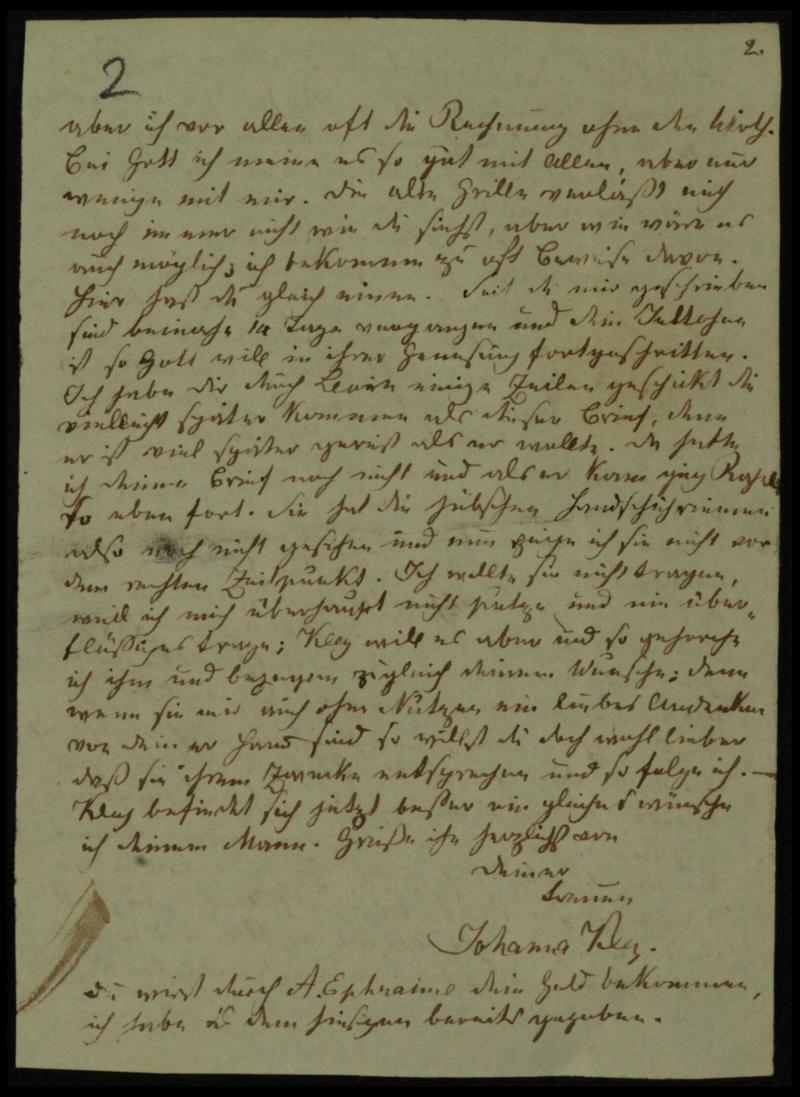 2.
2
aber ich vor allen oft die Rechnung ohne den Wirth.
Bei Gott ich meine es so gut mit allen, aber nur
wenige mit mir. Die alte Grille verläßt mich
noch immer nicht wie du siehst, aber wie wäre es
auch möglich; ich bekomme zu oft Beweise davon.
Hier hast du gleich einen. Seit du mir geschrieben
sind beinahe 14 Tage vergangen und dein
ist so Gott will in ihrer Genesung fortgeschritten.
Ich habe dir durch einige Zeilen geschickt die
vielleicht später kommen als dieser Brief, denn
er ist viel später gereist als er wollte. Da hatte
ich deinen Brief noch nicht und als er kam ging
so eben fort. Sie hat die hübschen
also noch nicht gesehen und nun zeige ich sie nicht vor
dem rechten Zeitpunkt. Ich wollte sie nicht tragen,
weil ich mich überhaupt nicht putze und nie über-
flüssiges trage; Kley will es aber und so gehorche
ich ihm und begegne zugleich deinem Wunsche; denn
wenn sie mir auch ohne Nutzen ein liebes Andenken
von deiner Hand sind so willst du doch wohl lieber
daß sie ihrem Zwecke entsprechen und so folge ich. —
Kley befindet sich jetzt besser ein gleiches wünsche
ich deinem Mann. Grüße ihn herzlichst von
deiner
treuen
Johanna Kley.
Du wirst durch A. Ephraime dein Geld bekommen,
ich habe es dem hiesigen bereits gegeben.